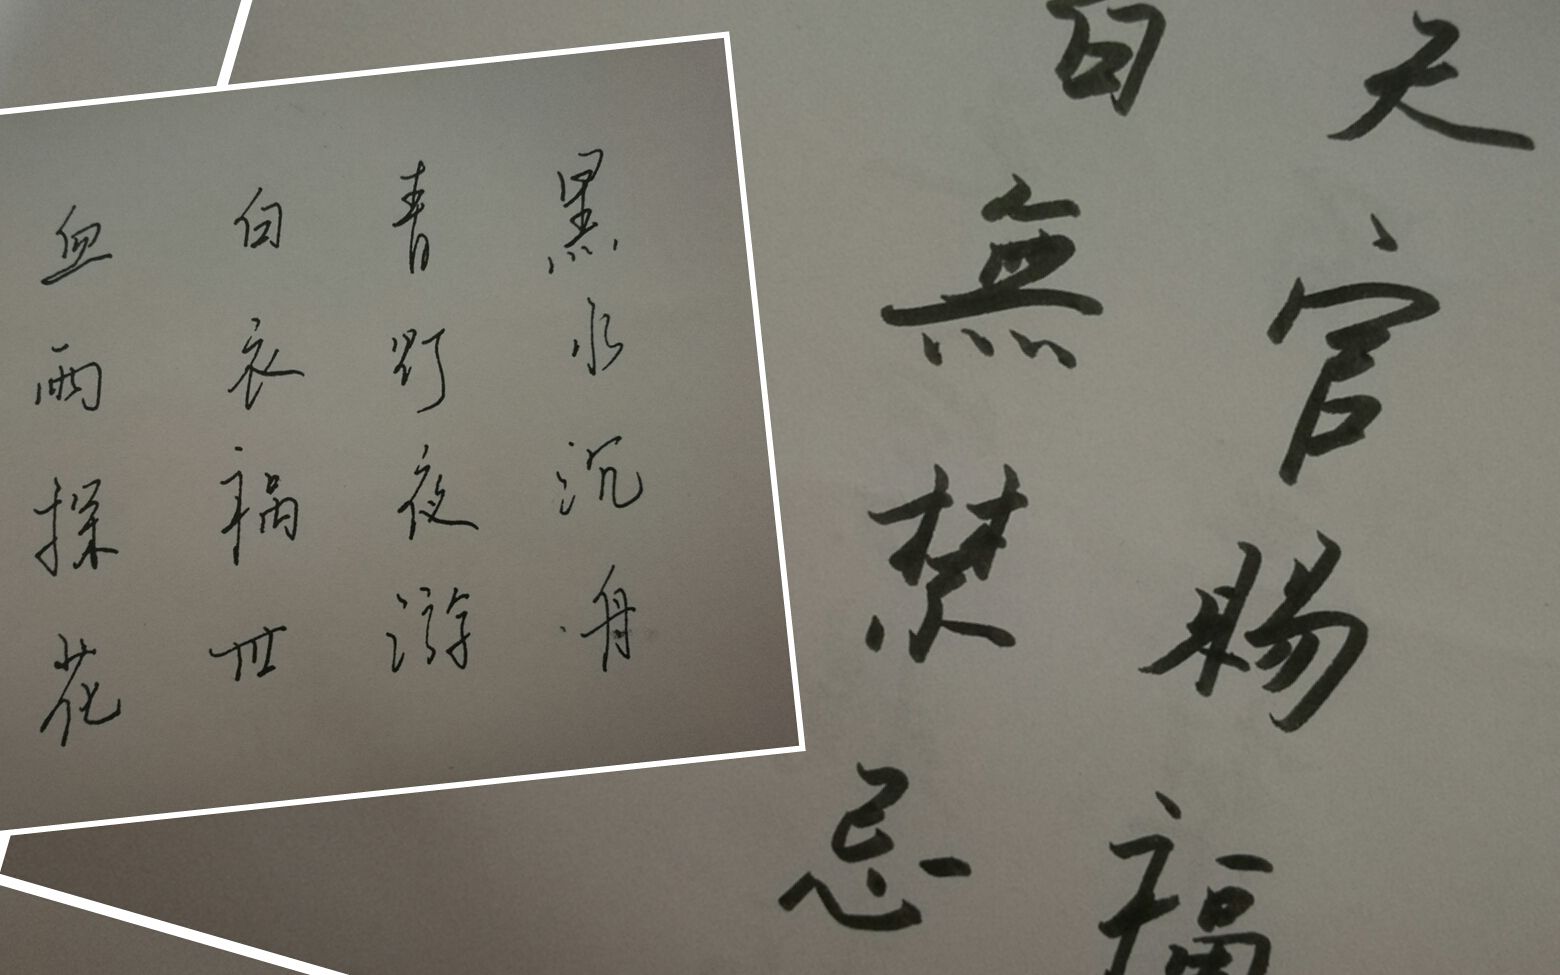 天官賜福
百無禁忌
黑水沉舟
青灯夜游
白衣祸世
血雨探花